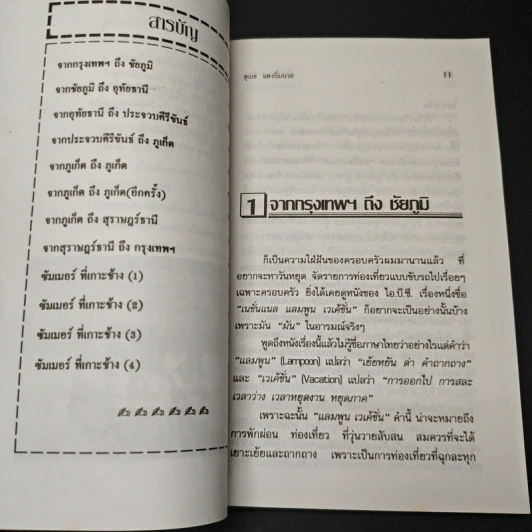 สารบัญ
จากกรุงเทพฯ ถึง ชัยภูมิ
จากชัยภูมิ ถึง อุทัยธานี
จากอุทัยธานี ถึง ประจวบคีรีขันธ์
จากประจวบคีรีขันธ์ ถึง ภูเก็ต
จากภูเก็ต ถึง ภูเก็ต
จากภูเก็ต ถึง ภูเก็ต(อีกครั้ง)
จากภูเก็ต ถึง สุราษฎร์ธานี
จากสุราษฎร์ธานี ถึง กรุงเทพฯ
ซัมเมอร์ ที่เกาะช้าง (1)
ซัมเมอร์ ที่เกาะช้าง (2)
ซัมเมอร์ ที่เกาะช้าง (3)
ซัมเมอร์ ที่เกาะช้าง (4)
11
1 จากกรุงเทพฯ ถึง ชัยภูมิ
ก็เป็นความใฝ่ฝันของครอบครัวผมมานานแล้ว ที่
อยากจะหาวันหยุด จัดรายการท่องเที่ยวแบบขับรถไปเรื่อยๆ
เฉพาะครอบครัว ยิ่งได้เคยดูหนังของ ไอ.บี.ซี. เรื่องหนึ่งชื่อ
"เนชั่นแนล แลมพูน เวเค้ชั่น" ก็อยากจะเป็นอย่างนั้นบ้าง
เพราะมัน "มัน" ในอารมณ์จริงๆ
พูดถึงหนังเรื่องนี้แล้วไม่รู้ชื่อภาษาไทยว่าอย่างไรแต่คำว่า
"แลมพูน" (Lampoon) แปลว่า "เย้ยหยัน ด่า คำถากถาง"
และ "เวเค้ชั่น" (Vacation) แปลว่า "การออกไป การสละ
เวลาว่าง เวลาหยุดงาน หยุดภาค"
เพราะฉะนั้น "แลมพูน เวเค้ชั่น" คำนี้ น่าจะหมายถึง
การพักผ่อน ท่องเที่ยว ที่วุ่นวายสับสน สมควรที่จะได้
เยาะเย้ยและถากถาง เพราะเป็นการท่องเที่ยวที่ฉุกละหุก